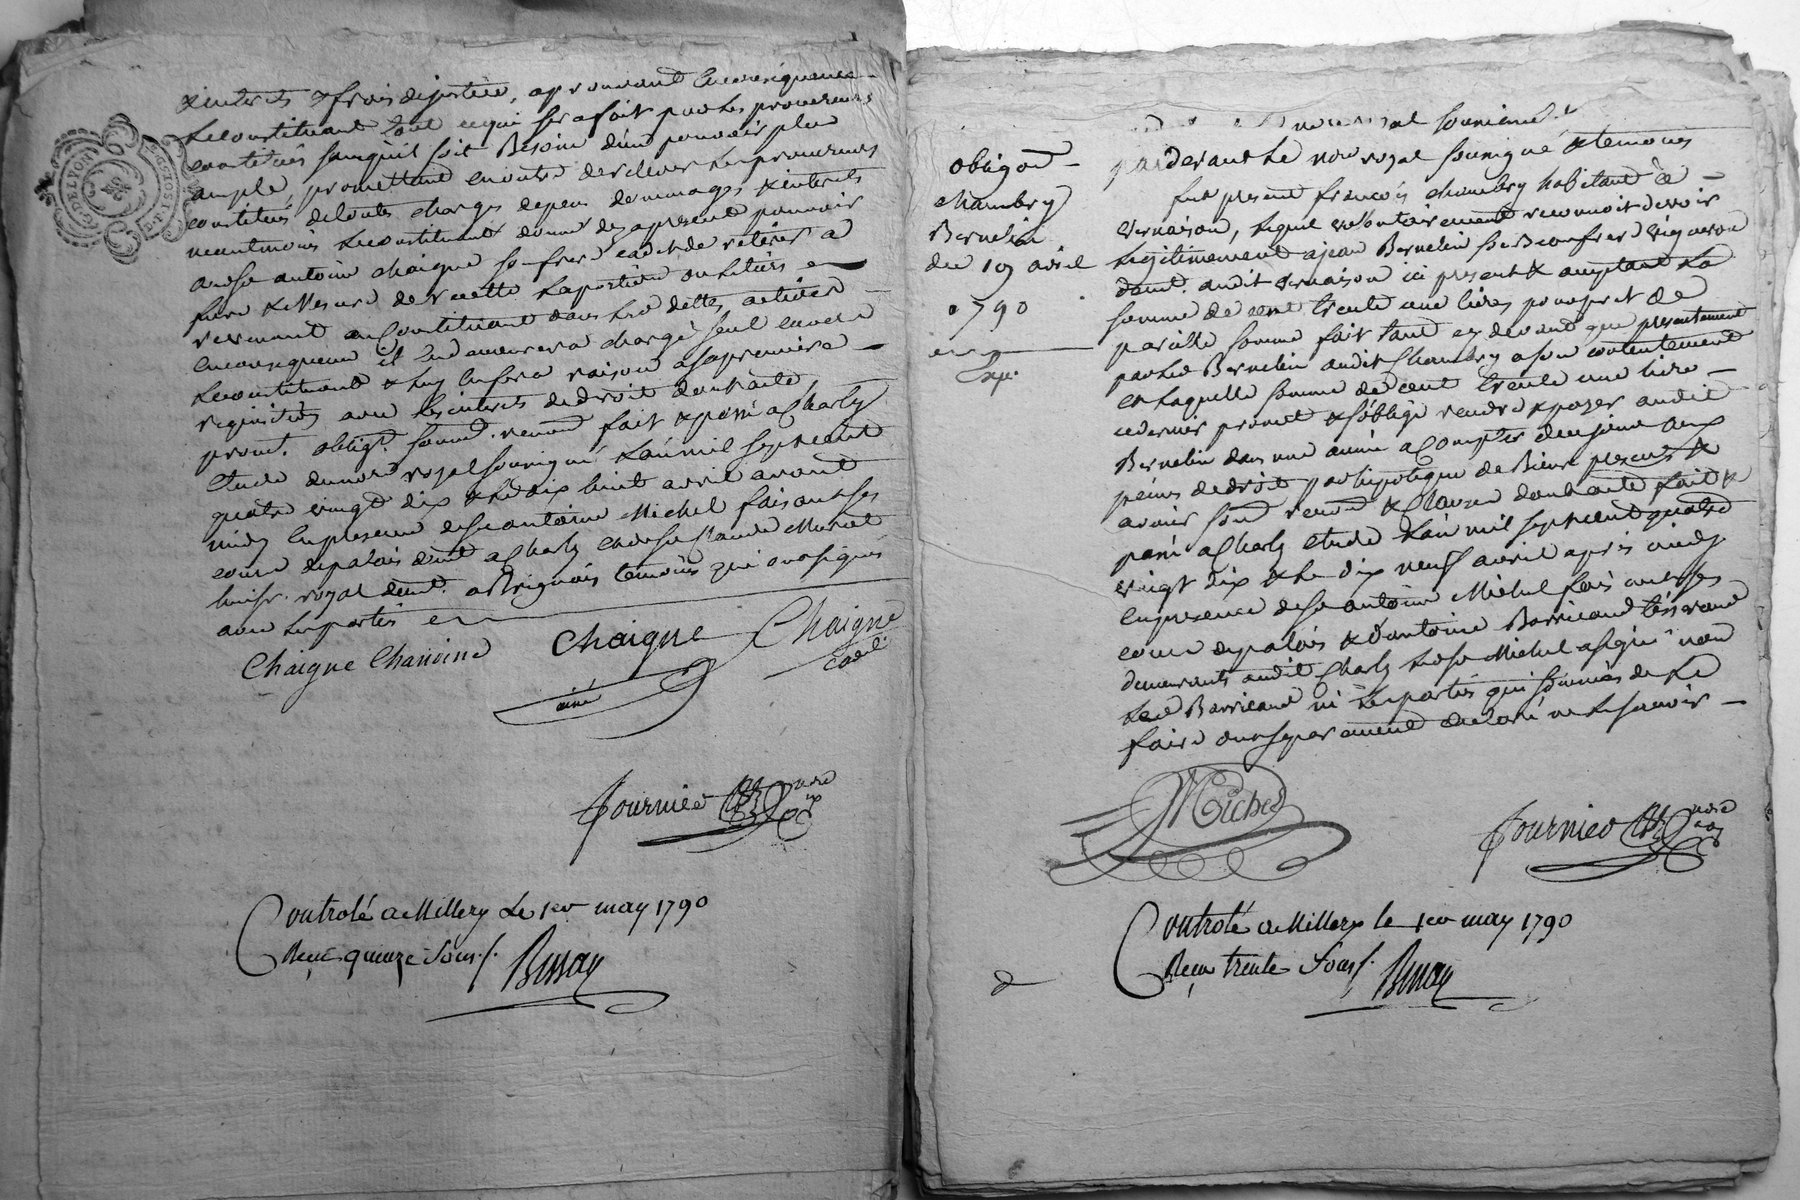 & interets & frais de justice, aprouvant en consequence
le constituant tout ce qui sera fait par les procureurs
constitués sans qu'il soit Besoin d'un pouvoir plus
ample, promettant en outre de relever les procureurs
constitués de toutes charges depens dommages & interets
neantmoins le constituant donne des apresent pouvoir
audse antoine chaigne so frere cadet de retirer a
fure & Mesure de recette la portion ou le tiers
revenant au Constituant dans les dettes actives
en consequence il en demeurera chargé seul envers
le constituant & luy en fera raison a sa premiere
requisition avec les interets de droit dont acte,
prom. oblig. soumd. renond. fait & passé a Charly
etude du nore royal soussigné L'an mil sept cent
quatre vingt dix & le dix huit avril avant
midy en presence de se antoine Michel faisant ses
cours de palais demt a Charly & de se Claude Muret
huisr. royal demt. a Brignais temoins qui ont signés
avec les parties
Chaigne Chanoine
Chaigne
ainé
Chaigne
cadet
Fournier nore
Controlé a Millery Le 1er may 1790
Reçu quinze Sous
G. DE LYON
obligon
chambry
Bernelin
du 19 avril
1790
Exp.
nore royal soussigné
pardevant Le nore royal soussigné & temoins
fut present francois chambry habitant à
vernaison, lequel volontairement reconnoit devoir
legitimement a jean Bernelin son Beaufrere vigneron
demt. audit vernaison ici present & acceptant La
somme de cent trente une livres pour pret de
pareille somme fait tant cy devant que presentement
par led Bernelin audit Chambry a son contentement
& laquelle somme de cent trente une livre
ce dernier promet & s'oblige rendre & payer audit
Bernelin dans une année a Compter de ce jour aux
peines de droit par hipoteque de Biens presents &
avenir soud renond & Clauses dont acte fait &
passé a Charly etude L'an mil sept cent quatre
vingt dix & Le dix neuf avril après midy
en presence de se antoine Michel fais ant ses
cours de palais & d'antoine Barricaud tisserand
demeurants audit Charly le dse Michel a signé non
Led Barricaud ni les parties qui sommées de Le
faire ont separement declaré ne le savoir
Michel
Fournier nore
Controlé a Millery le 1er may 1790
Reçu trente Sous